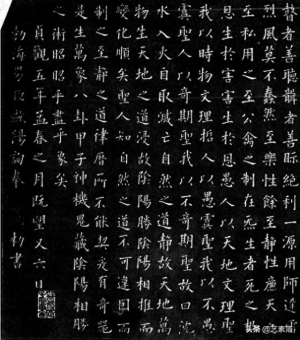 瞽者善聽聾者善眎絕利一源用師
烈風莫不蠢然至樂性餘至靜性廉天
至私用之至公禽之制在炁生者死之根
恩生於害害生於恩愚人以天地文理聖
我以時物文理哲人以愚虞聖我以不愚
虞聖人以奇期聖我以不奇期聖故曰沈
水入火自取滅亡自然之道靜故天地萬
物生天地之道浸故陰陽勝陰陽相推而
變化順矣聖人知自然之道不可違因而
制之至靜之道律曆所不能契爰有奇器
是生萬象八卦甲子神機鬼藏陰陽相勝
之術昭昭乎盡乎象矣
貞觀五年孟春之月既望又六日
渤海男歐陽詢奉勅書
头条